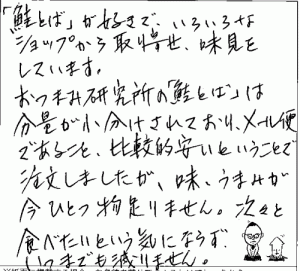 「鮭とば」が好きで、いろいろな
ショップから取り寄せ、味見を
しています。
おつまみ研究所の「鮭とば」は
分量が小分けされており、メール便
であること、比較的安いということで
注文しましたが、味、うまみが
今ひとつ物足りません。次々と
食べたいという気にならず、
いつまでも減りません。